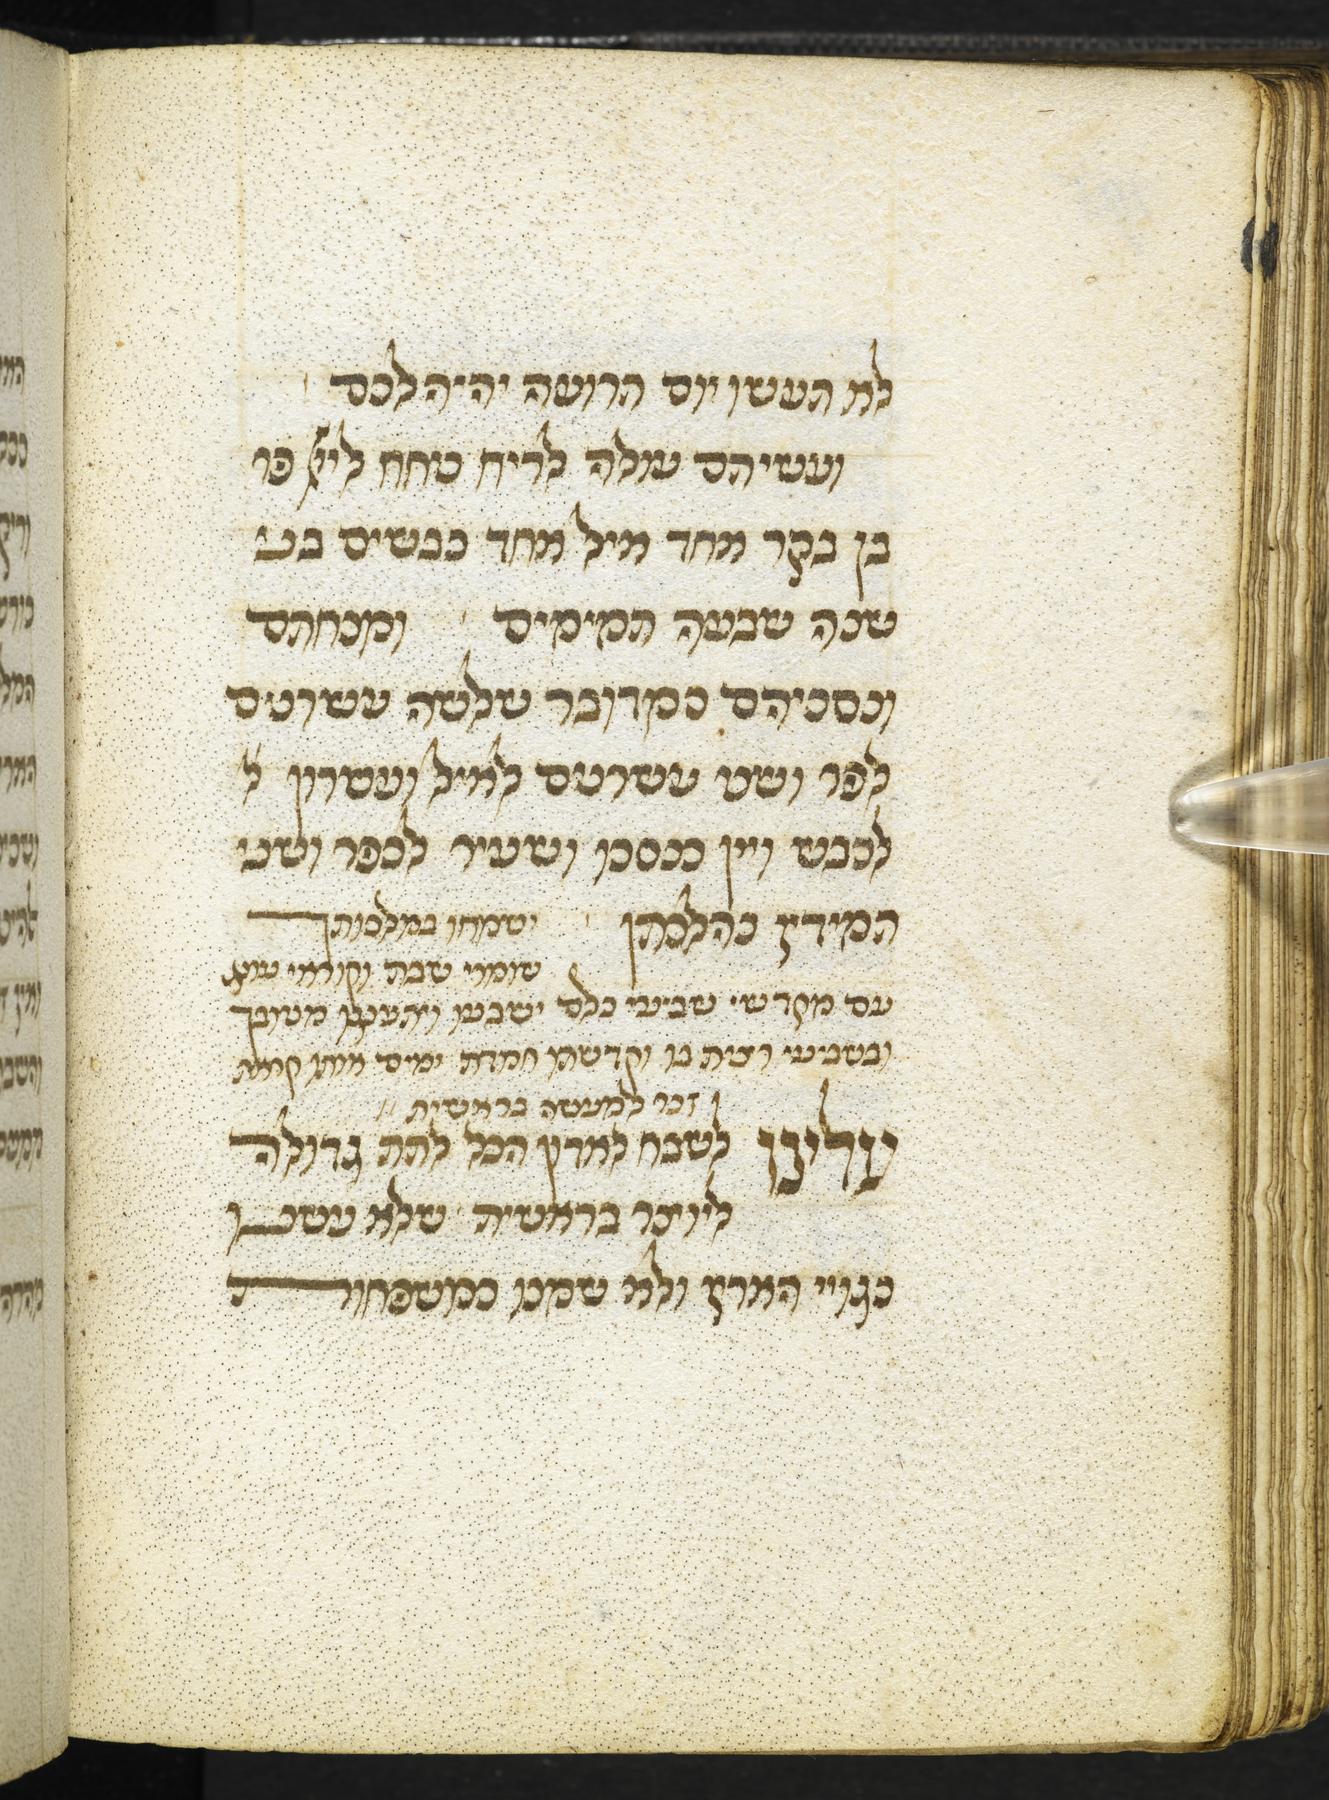 לא תעשו יום תרועה יהיה לכם
ועשיתם עולה לריח ניחח ליי פר
בן בקר אחד איל אחד כבשים בני
שנה שבעה תמימים ומנחתם
ונסכיהם כמדובר שלשה עשרונים
לפר ושני עשרונים לאיל ועשרון ל
לכבש ויין כנסכו ושעיר לכפר ושני
תמידין כהלכתן ישמחו במלכותך
שומרי שבת וקוראי עונג
עם מקדשי שביעי כלם ישבעו ויתענגו מטובך
ובשביעי רצית בו וקדשתו חמדת ימים אותו קראת
זכר למעשה בראשית
עלינו לשבח לאדון הכל לתת גדולה
ליוצר בראשית שלא עשנו
כגויי הארץ ולא שמנו כמשפחות